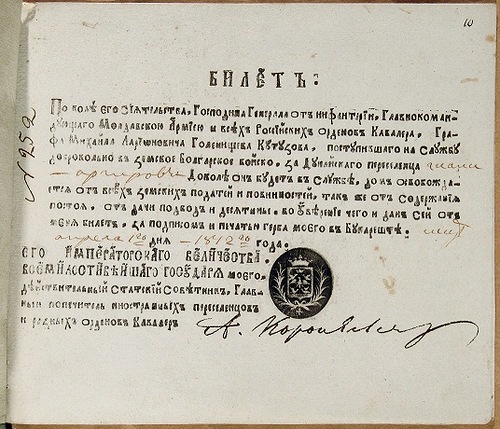 10
БИЛЕТЪ:
По волѣ его Сіятельства, Господина Генерала отъ инфантеріи, Главнокоман
дующаго Молдавскою Арміею и всѣхъ Россійскихъ Орденовъ Кавалера, Гра-
фа Михаила Ларіоновича Голенищева Кутузова, поступившаго на Службу
добровольно въ земское Болгарское войско, за Дунайскаго переселенца
Доволѣ онъ будетъ въ Службѣ, до тѣ освобожда
ется отъ всѣхъ земскихъ податей и повинностей, такъ же отъ Содержанія
постоя, отъ дачи подводъ и десятины. во увѣреніе чего и данъ сей отъ
меня билетъ, за подписомъ и печатью герба моего въ Букарештѣ:
апрѣля дня - 1812го года.
№ 252
его ИМПЕРАТОРСКАГО ВЕЛИЧЕСТВА
ВСЕМИЛОСТИВѢЙШАГО ГОСУДАРЯ моего,
дѣйствительный Статскій Совѣтникъ, Глав-
ный попечитель иностранныхъ переселенцовъ
и разныхъ орденовъ Кавалеръ
А.